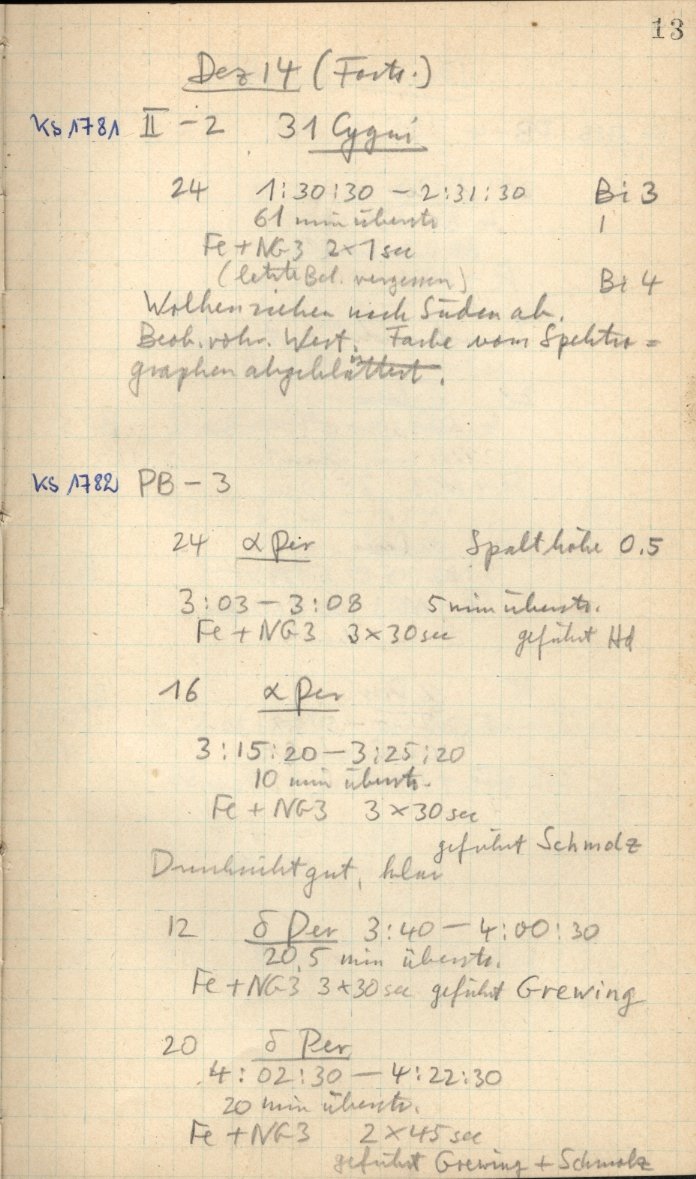 13
Dez 14 (Forts.)
KS 1781 II - 2 31 Cygni
24 1:30:30 - 2:31:30 Bi 3
61 min überstr.
Fe + NG3 2×1 sec
(letzte Bel. vergessen) Bi 4
Wolken ziehen nach Süden ab.
Beob. rohr. West. Farbe vom Spektro=
graphen abgeblättert.
KS 1782 PB - 3
24 α Per Spalthöhe 0.5
3:03 - 3:08 5 min überstr.
Fe + NG3 3×30 sec geführt Hd
16 α Per
3:15:20 - 3:25:20
10 min überstr.
Fe + NG3 3×30 sec
geführt Schmolz
Durchsicht gut, klar
12 δ Per 3:40 - 4:00:30
20,5 min überstr.
Fe + NG3 3×30 sec geführt Grewing
20 δ Per
4:02:30 - 4:22:30
20 min überstr.
Fe + NG3 2×45 sec
geführt Grewing + Schmolz